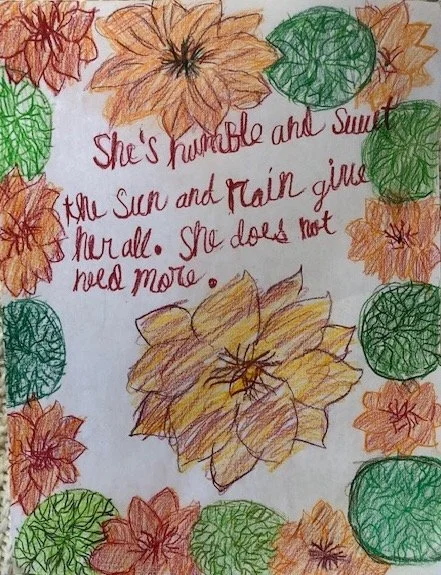 She's humble and Sweet
the Sun and Rain give
her all. She does not
need more.